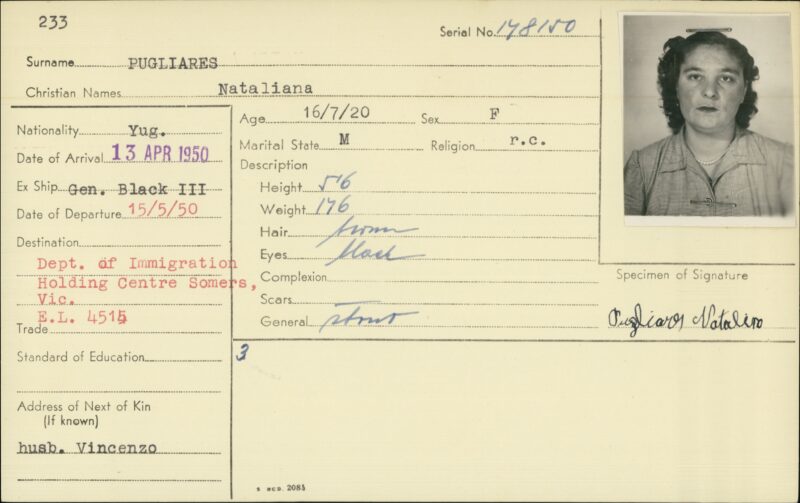 233
Serial No. 178150
Surname PUGLIARES
Christian Names Nataliana
Nationality Yug.
Date of Arrival 13 APR 1950
Ex Ship Gen. Black III
Date of Departure 15/5/50
Destination
Dept. of Immigration
Holding Centre Somers,
Vic.
E.L. 4515
Trade
Standard of Education
Address of Next of Kin
(If known)
husb. Vincenzo
Age 16/7/20 Sex F
Marital State M Religion r.c.
Description
Height 5'6
Weight 176
Hair brown
Eyes black
Complexion
Scars
General stout
3
Specimen of Signature
Pugliares
S BCD. 2085